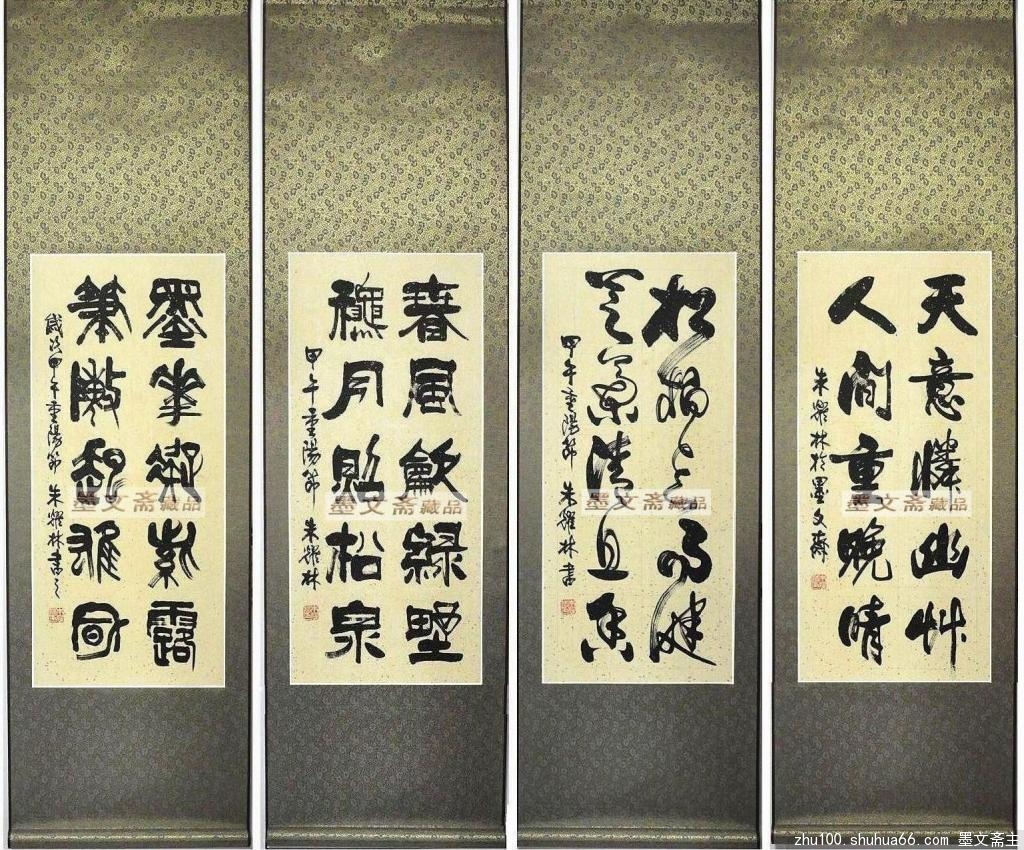 天意憐幽艸
人间重晚晴
朱耀林於墨文齋
松柏老而健
芝蘭清且香
甲午重陽節 朱耀林書
春風歌綠野
穐月照松泉
甲午重陽節 朱耀林
墨華凝紫露
筆起雄
歲次甲午重陽節 朱耀林書之
墨文斋藏品
墨文斋藏品
墨文斋藏品
墨文斋藏品
zhu100.shuhua66.com 墨文斋主